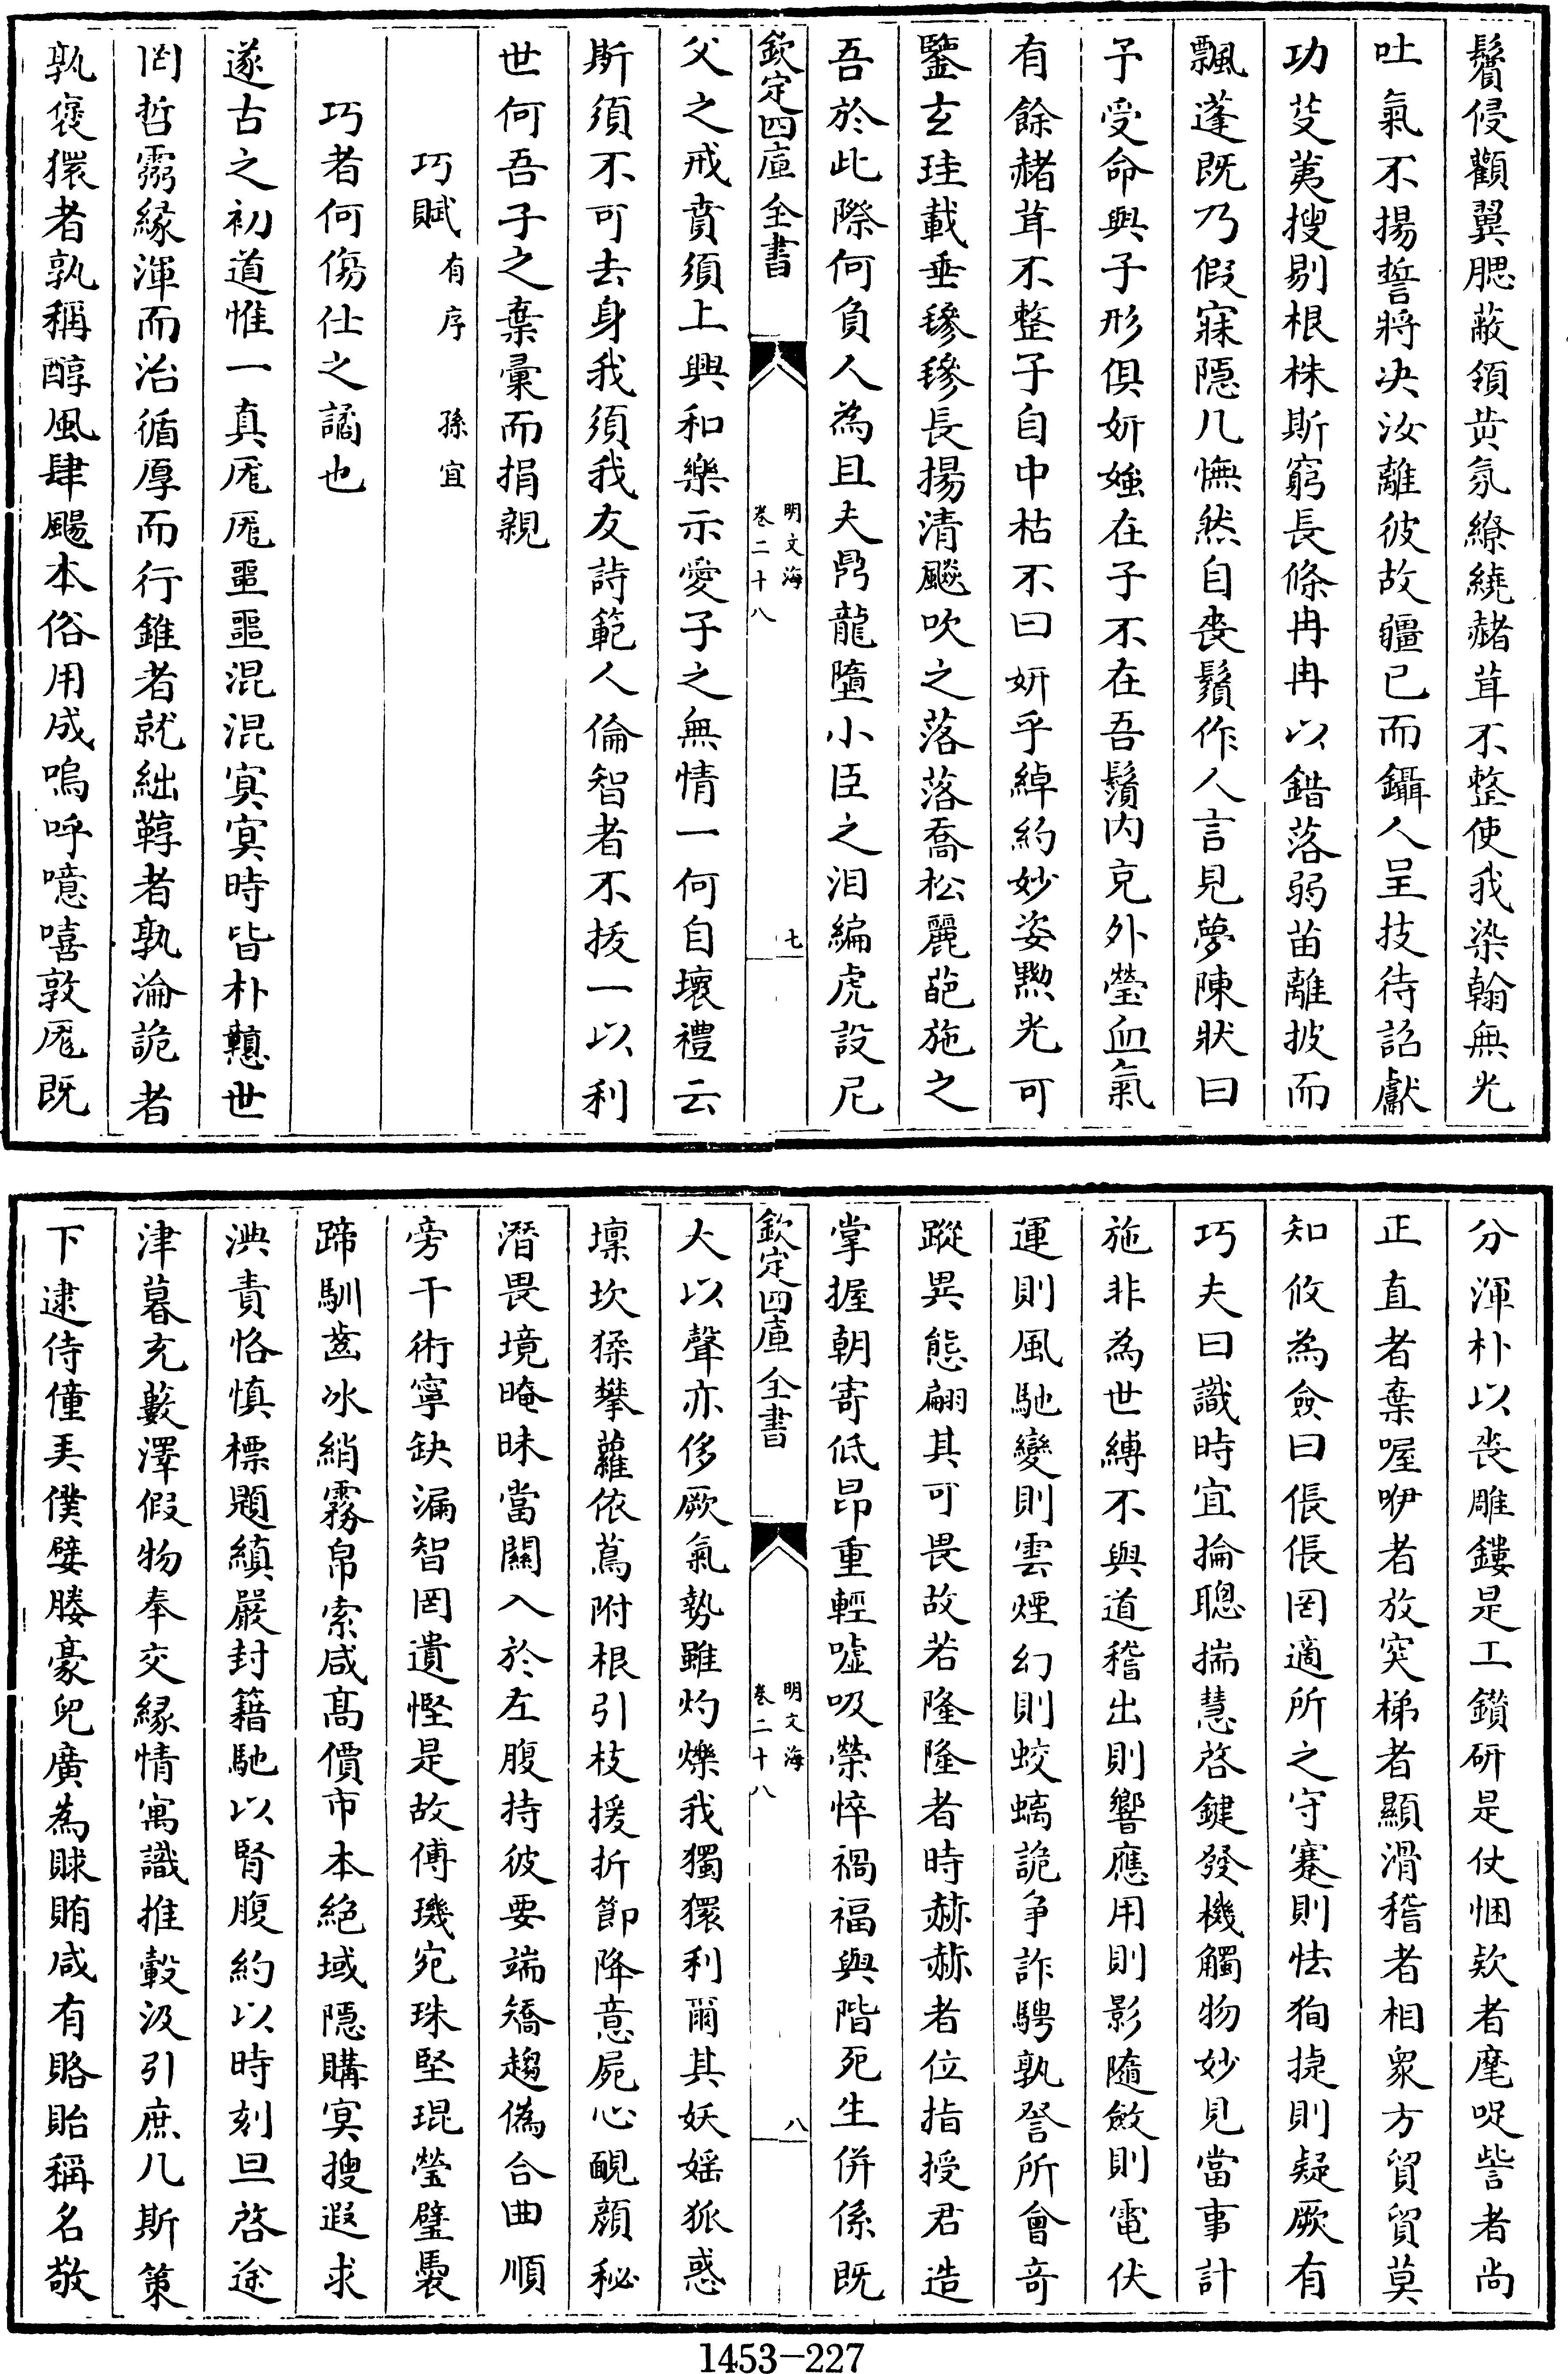 鬢侵顴翼腮蔽領㱔氛繚繞赭茸不整使我染翰無光
吐氣不揚誓將决汝離彼故疆已而鑷人呈技待詔獻
功芟荑搜剔根株斯窮長條冉冉以錯落弱苗離披而
飄蓬既乃假寐隠几憮然自喪鬚作人言見夢陳狀曰
予受命與子形俱妍媸在子不在吾鬚内克外瑩血氣
有餘赭茸不整子自中枯不曰妍乎綽約妙姿黝光可
鑒玄珪載垂鬖鬖長揚清颷吹之落落喬松麗葩施之
吾於此際何負人為且夫鼎龍墮小臣之泪編虎設尼
欽定四庫全書
明文海
卷二十八
七
父之戒賁須上興和樂示愛子之無情一何自壞禮云
斯須不可去身我須我友詩範人倫智者不拔一以利
世何吾子之棄彙而捐親
巧賦有序 孫宜
巧者何傷仕之譎也
遂古之初道惟一真厖厖噩噩混混冥冥時皆朴戅世
罔哲霧緣渾而治循厚而行錐者就絀䵍者孰淪詭者
孰褒獧者孰稱醇風肆颺本俗用成嗚呼噫嘻敦厖既
分渾朴以喪雕鏤是工鑽研是仗悃欵者麾哫訾者尚
正直者棄喔咿者放突梯者顯滑稽者相衆方貿貿莫
知攸為僉曰倀倀罔適所之守蹇則怯狥捷則疑厥有
巧夫曰識時宜掄聰揣慧啓鍵發機觸物妙見當事計
施非為世縛不與道稽出則響應用則影隨斂則電伏
運則風馳變則雲煙幻則蛟螭詭爭詐騁孰詧所會奇
蹤異態翩其可畏故若隆隆者時赫赫者位指授君造
掌握朝寄低昂重輕噓吸榮悴禍福與階死生倂係既
欽定四庫全書
明文海
卷二十八
八
大以聲亦侈厥氣勢雖灼爍我獨獧利爾其妖婬狐惑
壈坎猱攀蘿依蔦附根引枝援折節降意屍心靦顔秘
潛畏境晻昧當關入於左腹持彼要端矯趨偽合曲順
旁干術寧缺漏智罔遺慳是故傅璣宛珠堅琨瑩璧裊
蹄馴齒冰綃霧帛索咸髙價市本絶域隠購冥搜遐求
淟責恪慎標題縝嚴封籍馳以腎腹約以時刻旦啓途
津暮充藪澤假物奉交緣情寓識推轂汲引庶几斯策
下逮侍僮厮僕嬖媵豪兒廣為賕賄咸有賂貽稱名敬
1453-227